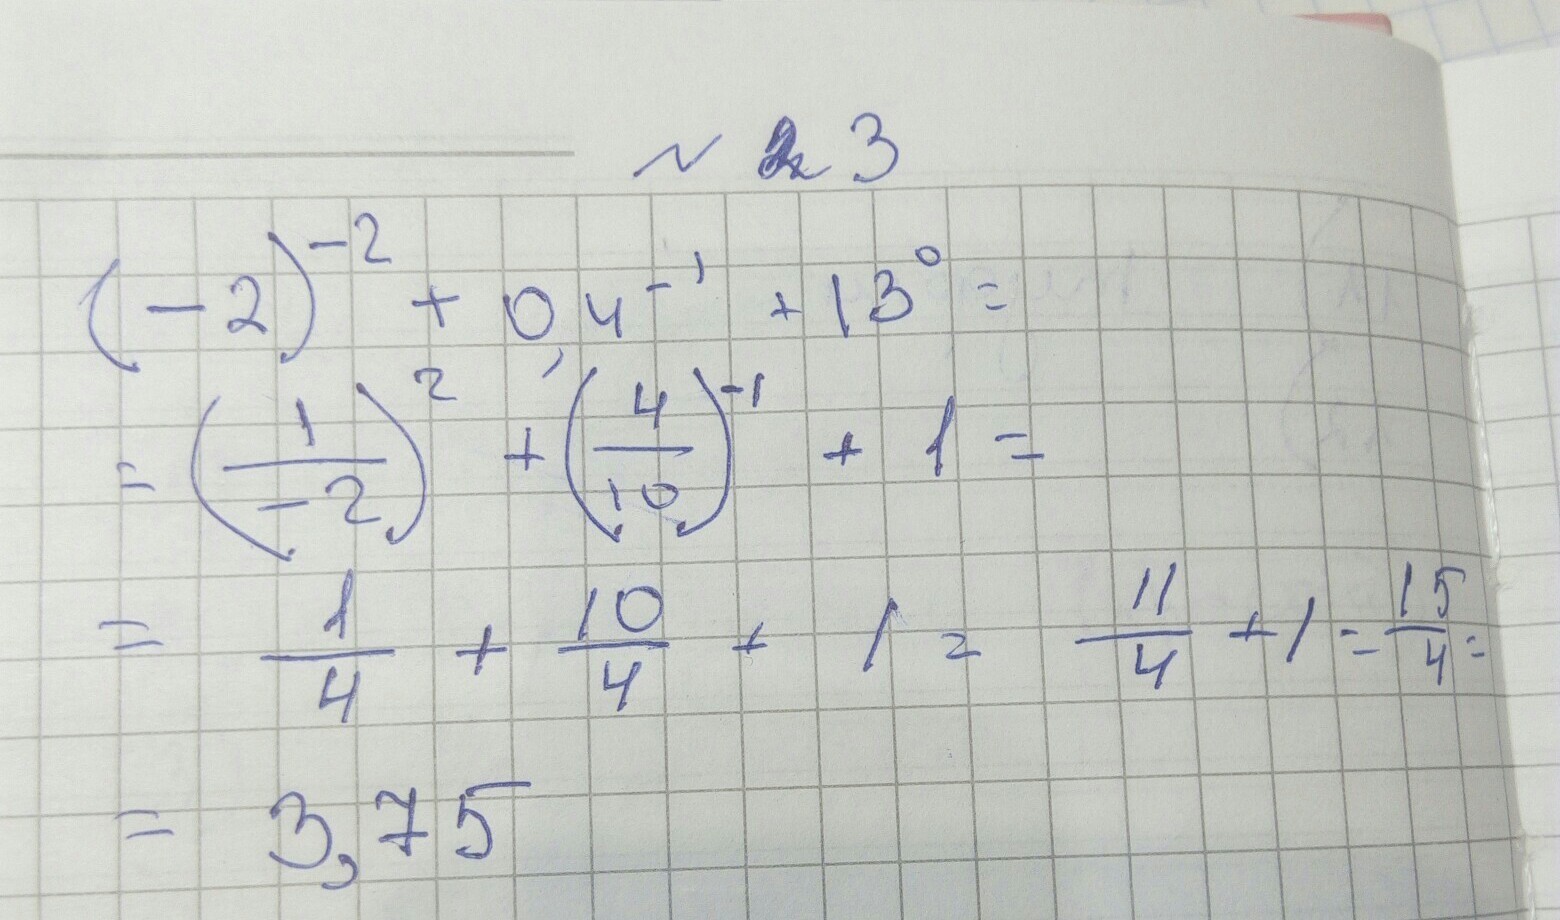 № 3
(-2)^-2 + 0,4^-1 + 13^0 =
= (1/-2)^2 + (4/10)^-1 + 1 =
= 1/4 + 10/4 + 1 = 11/4 + 1 = 15/4 =
= 3,75